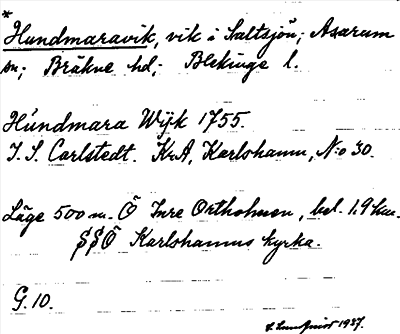 *
Hundmaravik, vik i Saltsjön; Asarum
sn; Bräkne hd; Blekinge l.
Hundmara Wijk 1755.
J. S. Carlstedt. KrA, Karlshamn, N:o 30.
Läge 500 m. Ö Inre Ortholmen, bel. 1.9 km.
SSÖ Karlshamns kyrka.
G. 10.
Lundqvist 1937.